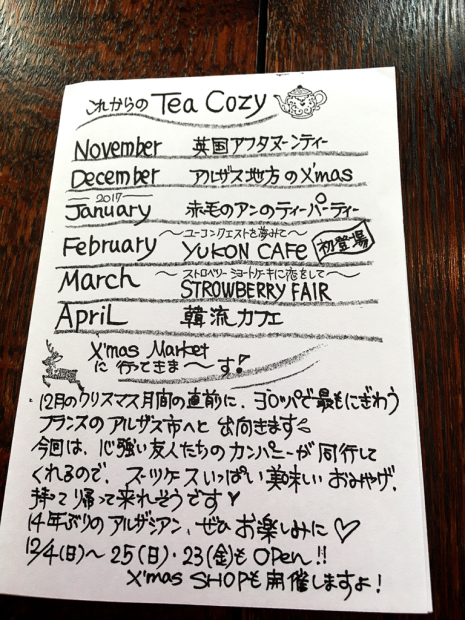 これからの Tea Cozy
November 英国アフタヌーンティー
December アルザス地方のX'mas
2017
January 赤毛のアンのティーパーティー
〜ユーコンクエストを夢みて〜
February YUKON CAFe 初登場
〜ストロベリーショートケーキに恋をして〜
March STROWBERRY FAIR
April 韓流カフェ
X'mas Market
に 行ってきま〜す!
12月のクリスマス月間の直前に、ヨーロッパで最もにぎわう
フランスの アルザス市へと 出向きます
今回は、心強い友人たちの カンパニーが 同行して
くれるので、スーツケースいっぱい 美味しい おみやげ、
持って 帰って来れそうです
14年ぶりの アルザシアン、ぜひ お楽しみに♡
12/4(日)〜25(日)・23(金)も OPen!!
X'mas SHOPも 開催しますよ!